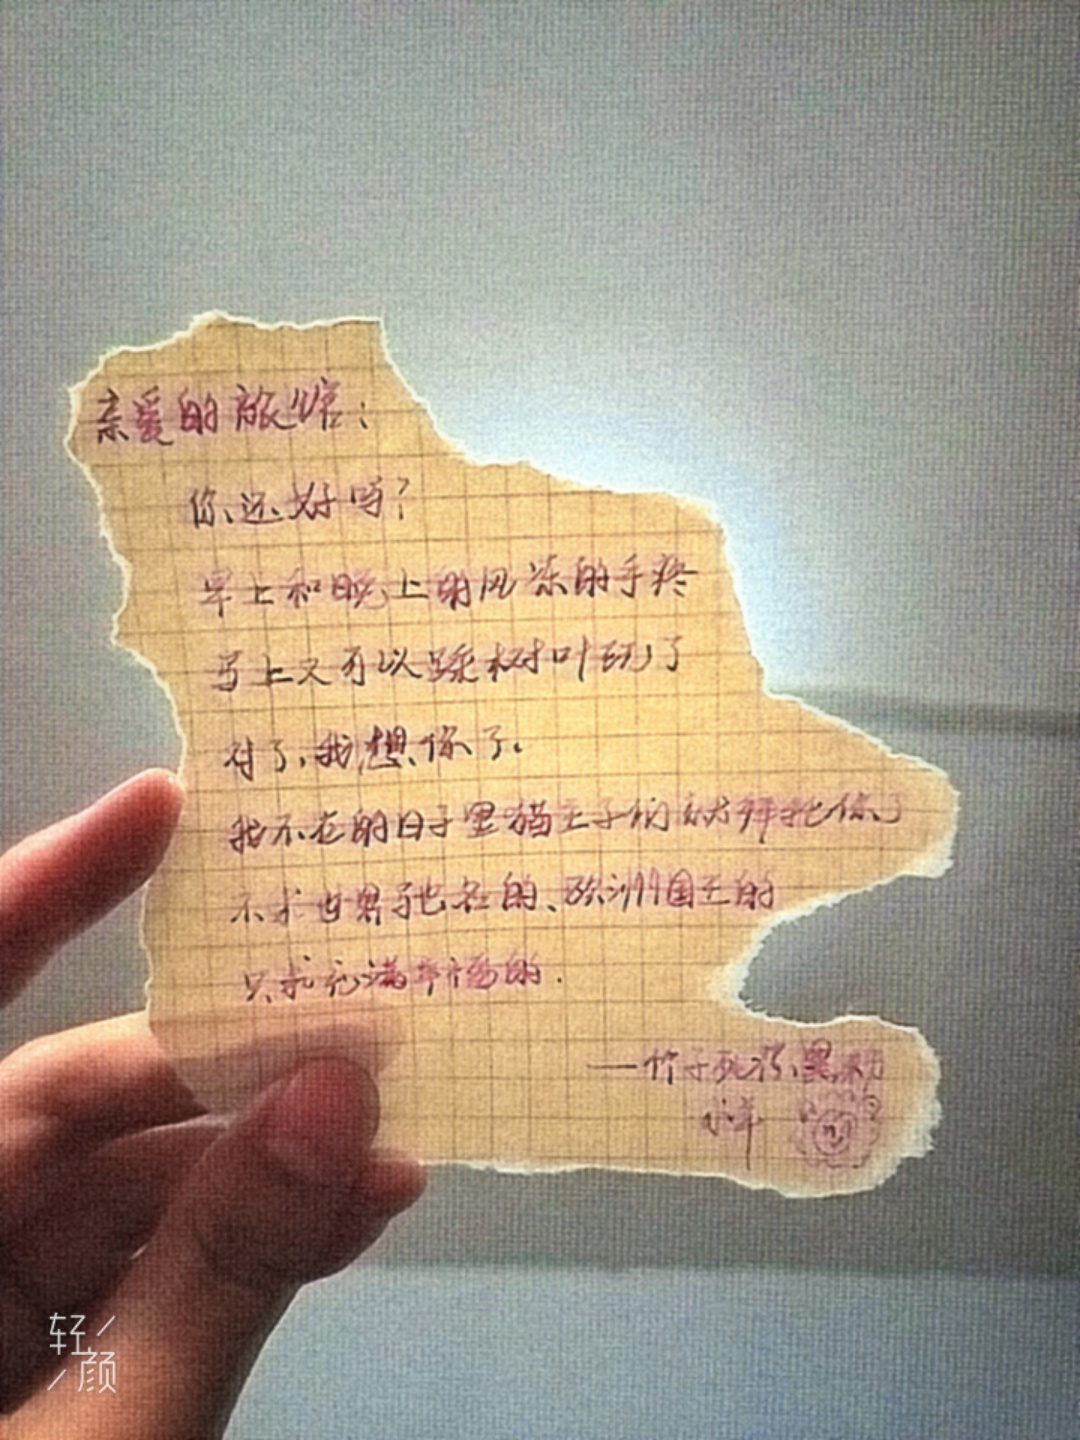 亲爱的旅
你还好吗?
早上和晚上的风冻的手疼
马上又可以踩树叶玩了
对了,我想你了。
我不在的日子里猫王子们就拜托你了
不求世界驰名的、欧洲国王的
只求充满幸福的.
——竹子
小羊
轻颜